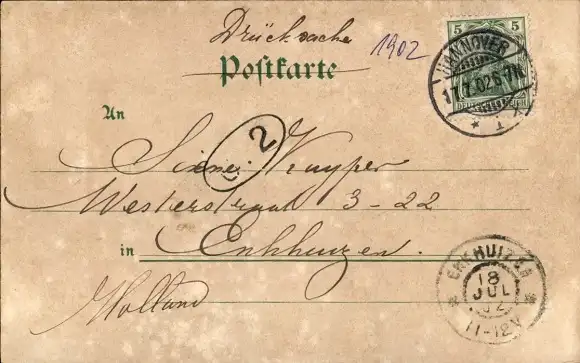 Drücksache
1902
Postkarte
5
HANNOVER
17.7.02 6-7N
* 1 *
An
2
Kuyper
Westerstraat 3-22
in Enkhuizen.
Holland
ENKHUIZEN
18
JUL
02
11-12V